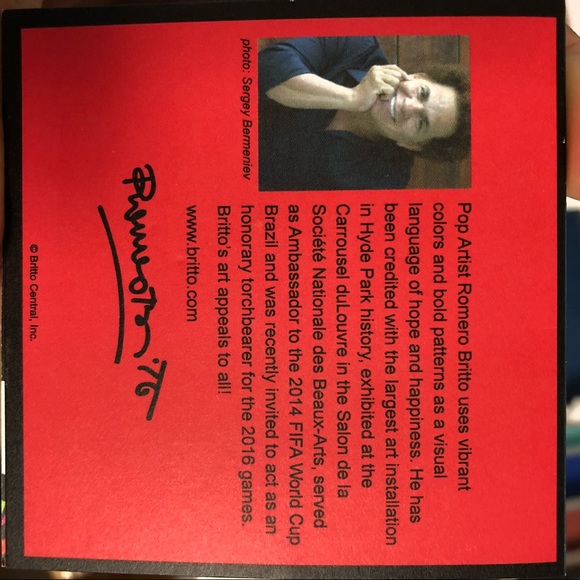 photo: Sergey Bermeniev
Pop Artist Romero Britto uses vibrant
colors and bold patterns as a visual
language of hope and happiness. He has
been credited with the largest art installation
in Hyde Park history, exhibited at the
Carrousel duLouvre in the Salon de la
Société Nationale des Beaux-Arts, served
as Ambassador to the 2014 FIFA World Cup
Brazil and was recently invited to act as an
honorary torchbearer for the 2016 games.
Britto's art appeals to all!
www.britto.com
© Britto Central, Inc.